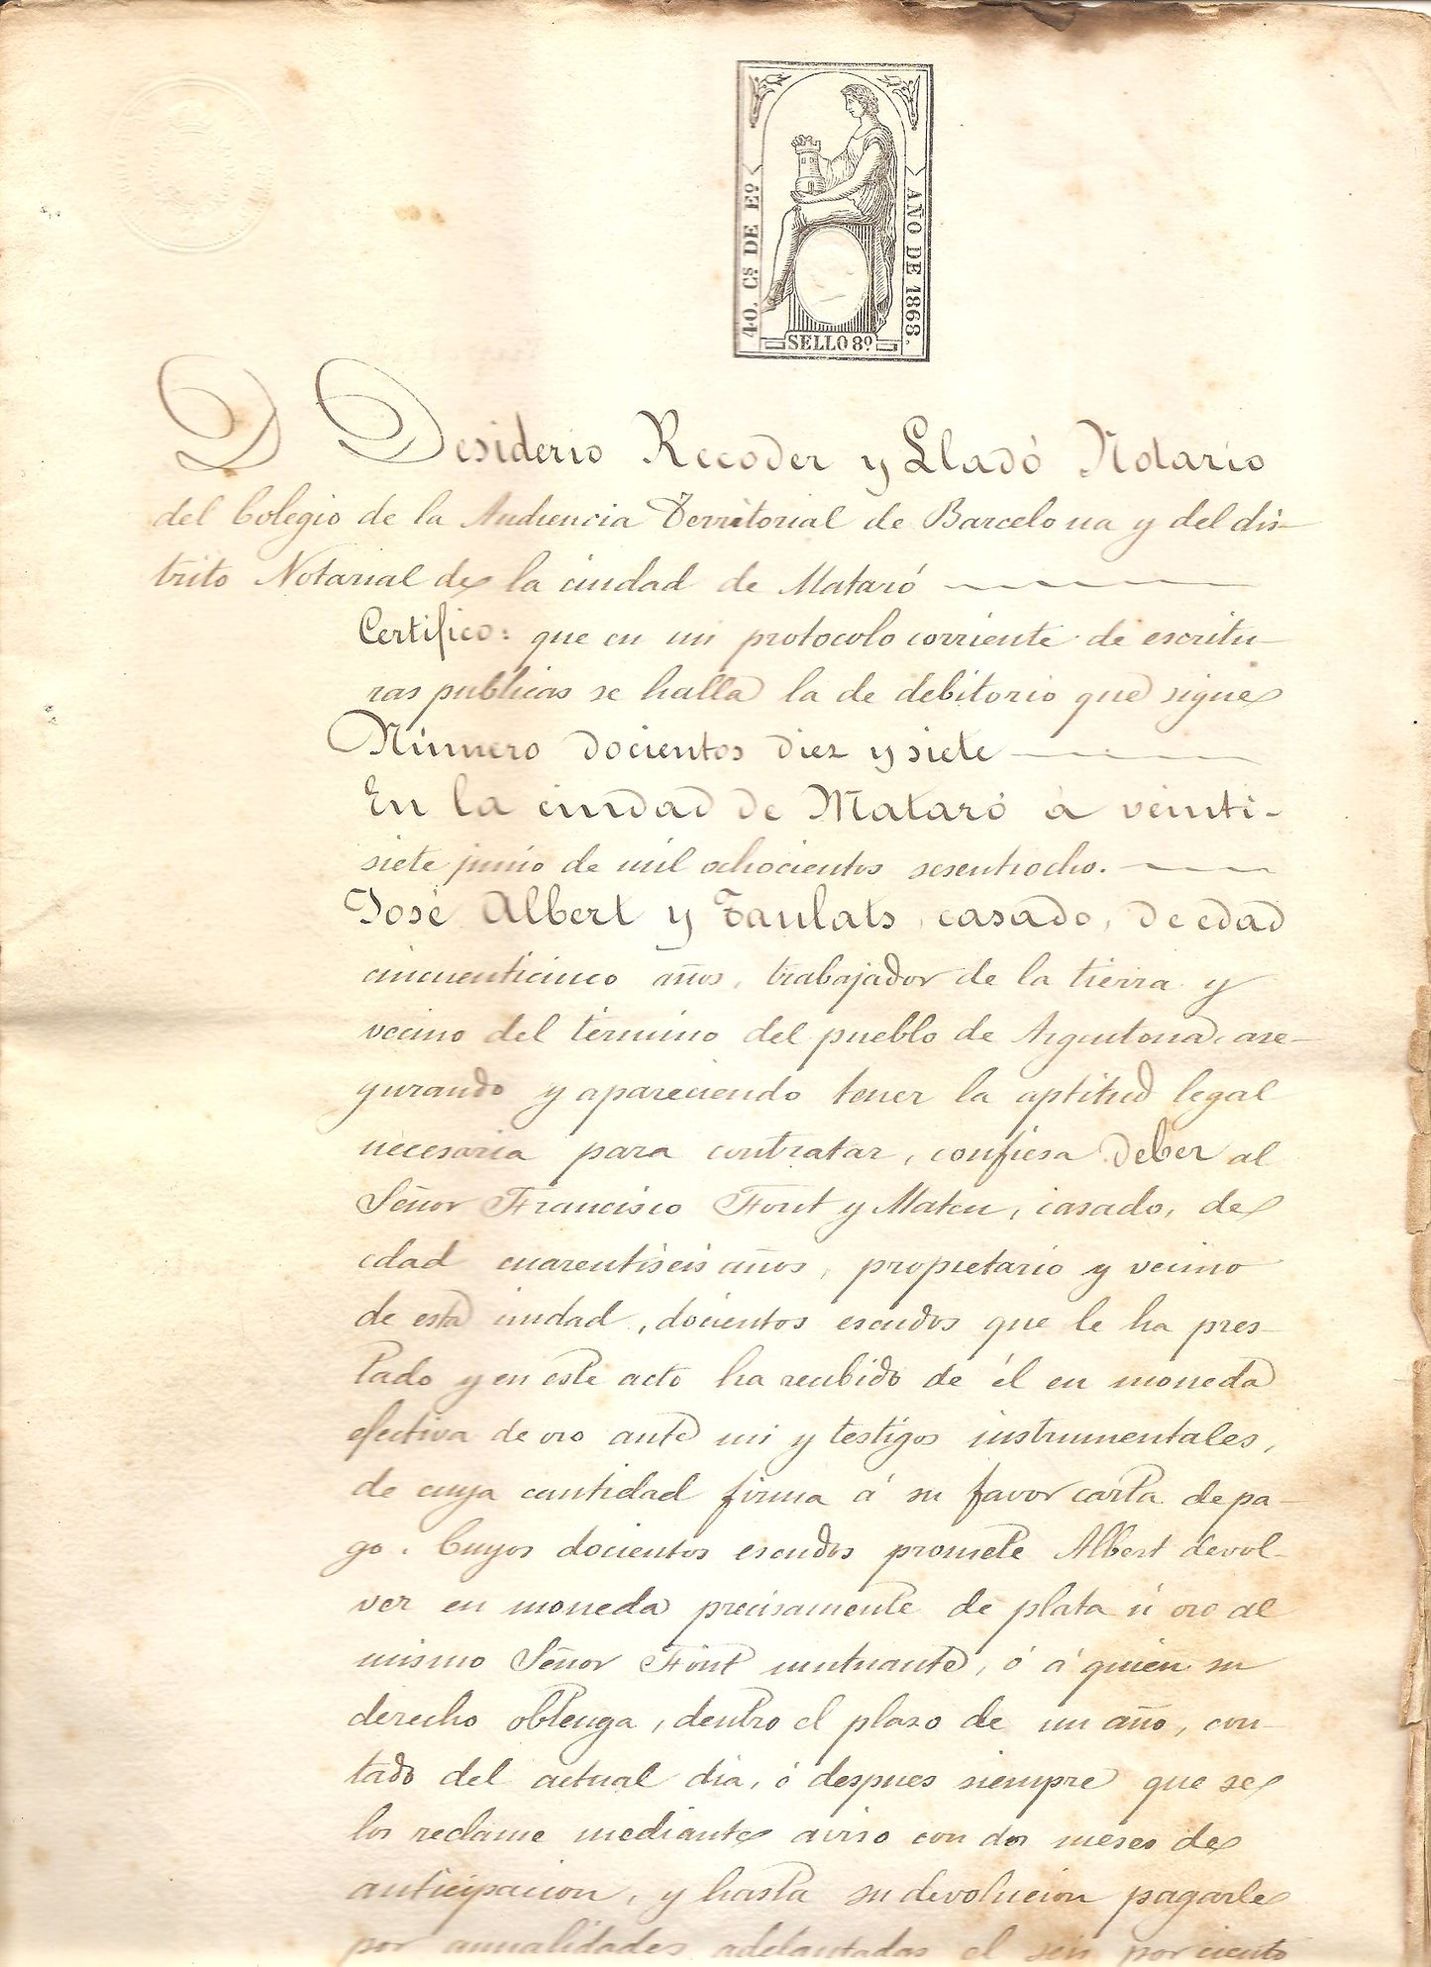 40. Cs DE Eº
AÑO DE 1868.
SELLO 8º
D Desiderio Recoder y Lladó Notario
del Colegio de la Audiencia Territorial de Barcelona y del dis-
trito Notarial de la ciudad de Mataró
Certifico: que en mi protocolo corriente de escritu-
ras publicas se halla la de debitorio que sigue
Número docientos diez y siete
En la ciudad de Mataró á veinti-
siete junio de mil ochocientos sesentiocho.
José Albert y Taulats, casado, de edad
cincuenticinco años, trabajador de la tierra y
vecino del término del pueblo de Argentona, ase-
gurando y apareciendo tener la aptitud legal
necesaria para contratar, confiesa deber al
Señor Francisco Font y Mateu, casado, de
edad cuarentiseis años, propietario y vecino
de esta ciudad, docientos escudos que le ha pres-
tado y en este acto ha recibido de él en moneda
efectiva de oro ante mi y testigos instrumentales,
de cuya cantidad firma á su favor carta de pa-
go. Cuyos docientos escudos promete Albert devol-
ver en moneda precisamente de plata ú oro al
mismo Señor Font mutuante, ó á quien su
derecho obtenga, dentro el plazo de un año, con-
tado del actual dia, ó despues siempre que se
los reclame mediante aviso con dos meses de
anticipacion, y hasta su devolucion pagarle
por annalidades adelantadas el seis por ciento